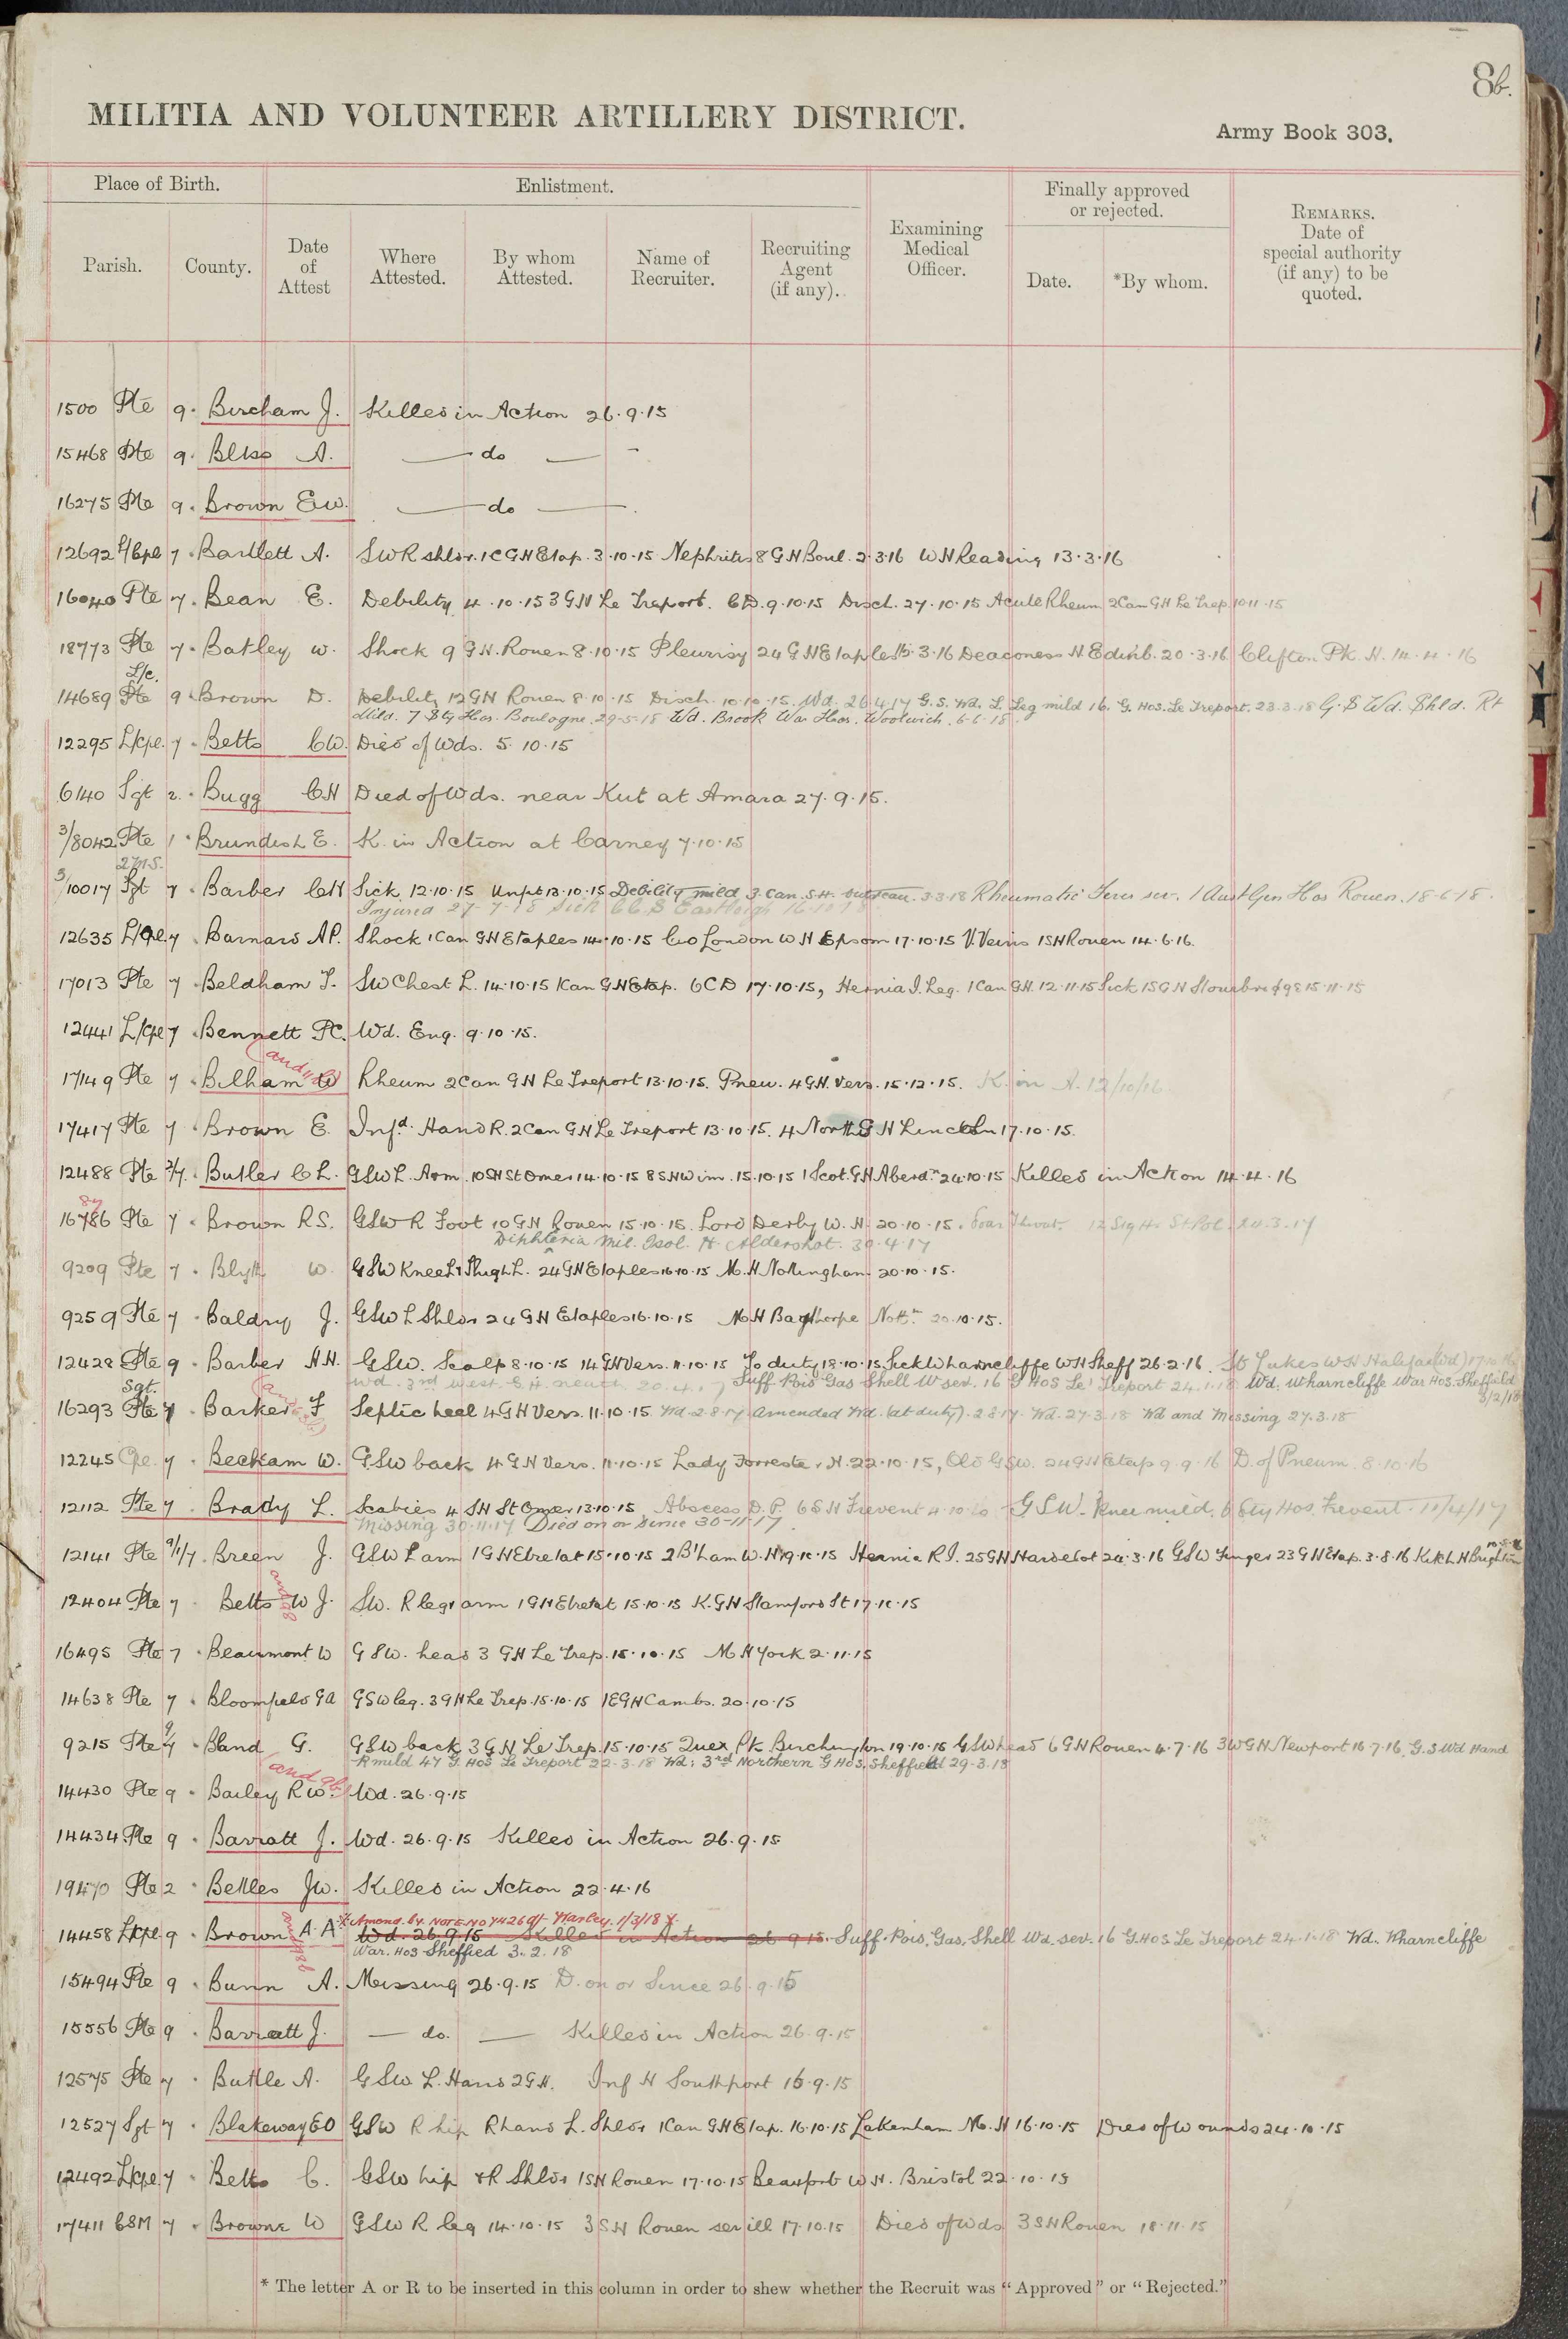 8b.
MILITIA AND VOLUNTEER ARTILLERY DISTRICT.
Army Book 303.
Place of Birth. Enlistment. Finally approved or rejected.
Parish. County. Date of Attest Where Attested. By whom Attested. Name of Recruiter. Recruiting Agent (if any). Examining Medical Officer. Date. *By whom. REMARKS. Date of special authority (if any) to be quoted.
1500 Pte 9 Bircham J. Killed in Action 26.9.15
15468 Pte 9 Bliss A. — do —
16275 Pte 9 Brown E.W. — do —
12692 L/Cpl 7 Bartlett A. SWR shldr. 1CGH Etap. 3.10.15 Nephritis 8 GH Boul. 2.3.16 WH Reading 13.3.16
16040 Pte 7 Bean E. Debility 4.10.15 3 GH Le Treport. CD. 9.10.15 Disch. 27.10.15 Acute Rheum 2 Can GH Le Trep. 10.11.15
18773 Pte 7 Batley W. Shock 9 GH. Rouen 8.10.15 Pleurisy 24 GH Etaples 16.3.16 Deaconess H. Edinb. 20.3.16 Clifton Pk. H. 14.4.16
L/c.
14689 Pte 9 Brown D. Debility 12 GH Rouen 8.10.15 Disch. 10.10.15. Wd. 26.4.17 G.S. Wd. L. Leg mild 16. G. Hos. Le Treport. 23.3.18 G.S Wd. Shld. Rt
Mild. 7 Sty Hos. Boulogne. 29-5-18 Wd. Brook War Hos. Woolwich. 6-6-18
12295 L/Cpl. 7 Betts C.W. Died of Wds. 5.10.15
6140 Sgt 2. Bugg C.H Died of Wds. near Kut at Amara 27.9.15.
3/8042 Pte 1 Brundish E. K. in Action at Carney 7.10.15
3/10017 Sgt 7 Barber C.H Sick 12.10.15 13.10.15 Debility mild 3. Can. S.H. 3-3-18 Rheumatic Fever 1 Aust Gen Hos Rouen. 18-6-18.
Injured 27-7-18 Sick CCS Eastleigh
12635 L/Cpl. 7 Barnard A.P. Shock 1 Can GH Etaples 14.10.15 Co London WH Epsom 17.10.15 V. Veins 1SH Rouen 14.6.16.
17013 Pte 7 Beldham T. SW Chest L. 14.10.15 1Can GH Etap. 6CD 17.10.15, Hernia I. Leg. 1 Can GH. 12.11.15 Sick 15 GH 15.11.15
12441 L/Cpl 7 Bennett P.C. Wd. Eng. 9.10.15.
17149 Pte 7 Bilham W Rheum 2 Can GH Le Treport 13.10.15. Pneu. 4 GH. Vers. 15.12.15. K. in A. 12/10/16
17417 Pte 7 Brown E. Infd. Hand R. 2 Can GH Le Treport 13.10.15. 4 North G H Lincoln 17.10.15.
12488 Pte 7. Butler C.L. GSW L. Arm. 10SH St Omer 14.10.15 8SH Wim. 15.10.15 1 Scot. GH Aberd. 24.10.15 Killed in Action 14.4.16
16786 Pte 7 Brown R.S. GSW R Foot 10 GH Rouen 15.10.15. Lord Derby W.H. 20.10.15. Soar Throat 12 St Pol. 20.3.17
Diphteria Mil. Isol. H. Aldershot. 30.4.17
9209 Pte 7 Blyth W. GSW Knee L & Thigh L. 24 GH Etaples 16.10.15 M.H. Nottingham 20.10.15.
9259 Pte 7 Baldry J. GSW L Shldr 24 GH Etaples 16.10.15 MH Bagthorpe Nottm 20.10.15.
12428 Pte 9 Barber H.H. GSW. Scalp 8.10.15 14 GH Vers. 11.10.15 To duty 18.10.15. Sick Wharncliffe WH Sheff 26.2.16. St Lukes WH Halifax (Wd)
Sgt. Wd. 3rd West. G.H. 20.4.17 Suff Pois Gas Shell W sev. 16 G Hos Le Treport 24.1.18 Wd. Wharncliffe War Hos. Sheffield 3/2/18
16293 Pte 7 Barker F Septic heel 4 GH Vers. 11.10.15 Wd. 2.8.17 amended Wd. (at duty). 2.8.17. Wd. 27.3.18 Wd and Missing 27.3.18
12245 Cpl. 7 Beckam W. GSW back 4 GH Vers. 11.10.15 Lady Forrester H. 22.10.15, Old GSW. 24 GH Etap 9.9.16 D. of Pneum. 8.10.16
12112 Pte 7 Brady L. Scabies 4 SH St Omer 13.10.15 Abscess D.P. 6 SH Frevent GSW. Knee mild. 6 Sty Hos. Frevent. 11/4/17
Missing 30.11.17 Died on or since 30-11-17.
12141 Pte 9/1/7. Breen J. GSW L arm 1 GH Etretat 15.10.15 2 B'ham W.H. 19.10.15 Hernia R.I. 25 GH Hardelot 24.3.16 GSW Finger 23 GH Etap. 3.8.16 Kitch H Brighton
12404 Pte 7 Betts W J. SW. R leg & arm 1 GH Etretat 15.10.15 K.GH Stamford St 17.10.15
16495 Pte 7 Beaumont W GSW. head 3 GH Le Trep. 15.10.15 M H York 2.11.15
14638 Pte 7 Bloomfield GA GSW leg. 3 GH Le Trep. 15.10.15 1EGH Cambs. 20.10.15
9215 Pte 9/7 Bland G. GSW back 3 GH Le Trep. 15.10.15 Quex Pk Birchington 19.10.15 GSW head 6 GH Rouen 4.7.16 3WGH Newport 16.7.16 G.S Wd Hand
R mild 47 G. Hos Le Treport 22.3.18 Wd: 3rd Northern G Hos. Sheffield 29-3-18
14430 Pte 9 Bailey R W. Wd. 26.9.15
14434 Pte 9 Barratt J. Wd. 26.9.15 Killed in Action 26.9.15
19470 Pte 2 Bettles J.W. Killed in Action 22.4.16
Amend. by Note No 7426 d/- Warley. 1/3/18
14458 L/Cpl. 9 Brown A.A Wd. 26.9.15 Killed in Action 26.9.15. Suff. Pois. Gas. Shell Wd. sev. 16 G. Hos. Le Treport 24.1.18 Wd. Wharncliffe
War. Hos Sheffied 3.2.18
15494 Pte 9 Bunn A. Missing 26.9.15 D. on or Since 26.9.15
15556 Pte 9 Barratt J. — do. — Killed in Action 26.9.15
12575 Pte 7 Buttle A. GSW L. Hand 2 GH. Inf H Southport 16.9.15
12527 Sgt 7 Blakeway E O GSW R hip R hand L. Shldr 1 Can GH Etap. 16.10.15 Lakenham M.H 16.10.15 Died of Wounds 24.10.15
12492 L/Cpl. 7 Betts C. GSW hip & R Shldr 1SH Rouen 17.10.15 Beaufort W H. Bristol 22.10.15
17411 CSM 7 Browne W GSW R leg 14.10.15 3 SH Rouen ser ill 17.10.15 Died of Wds 3 SH Rouen 18.11.15
* The letter A or R to be inserted in this column in order to shew whether the Recruit was “Approved” or “Rejected.”